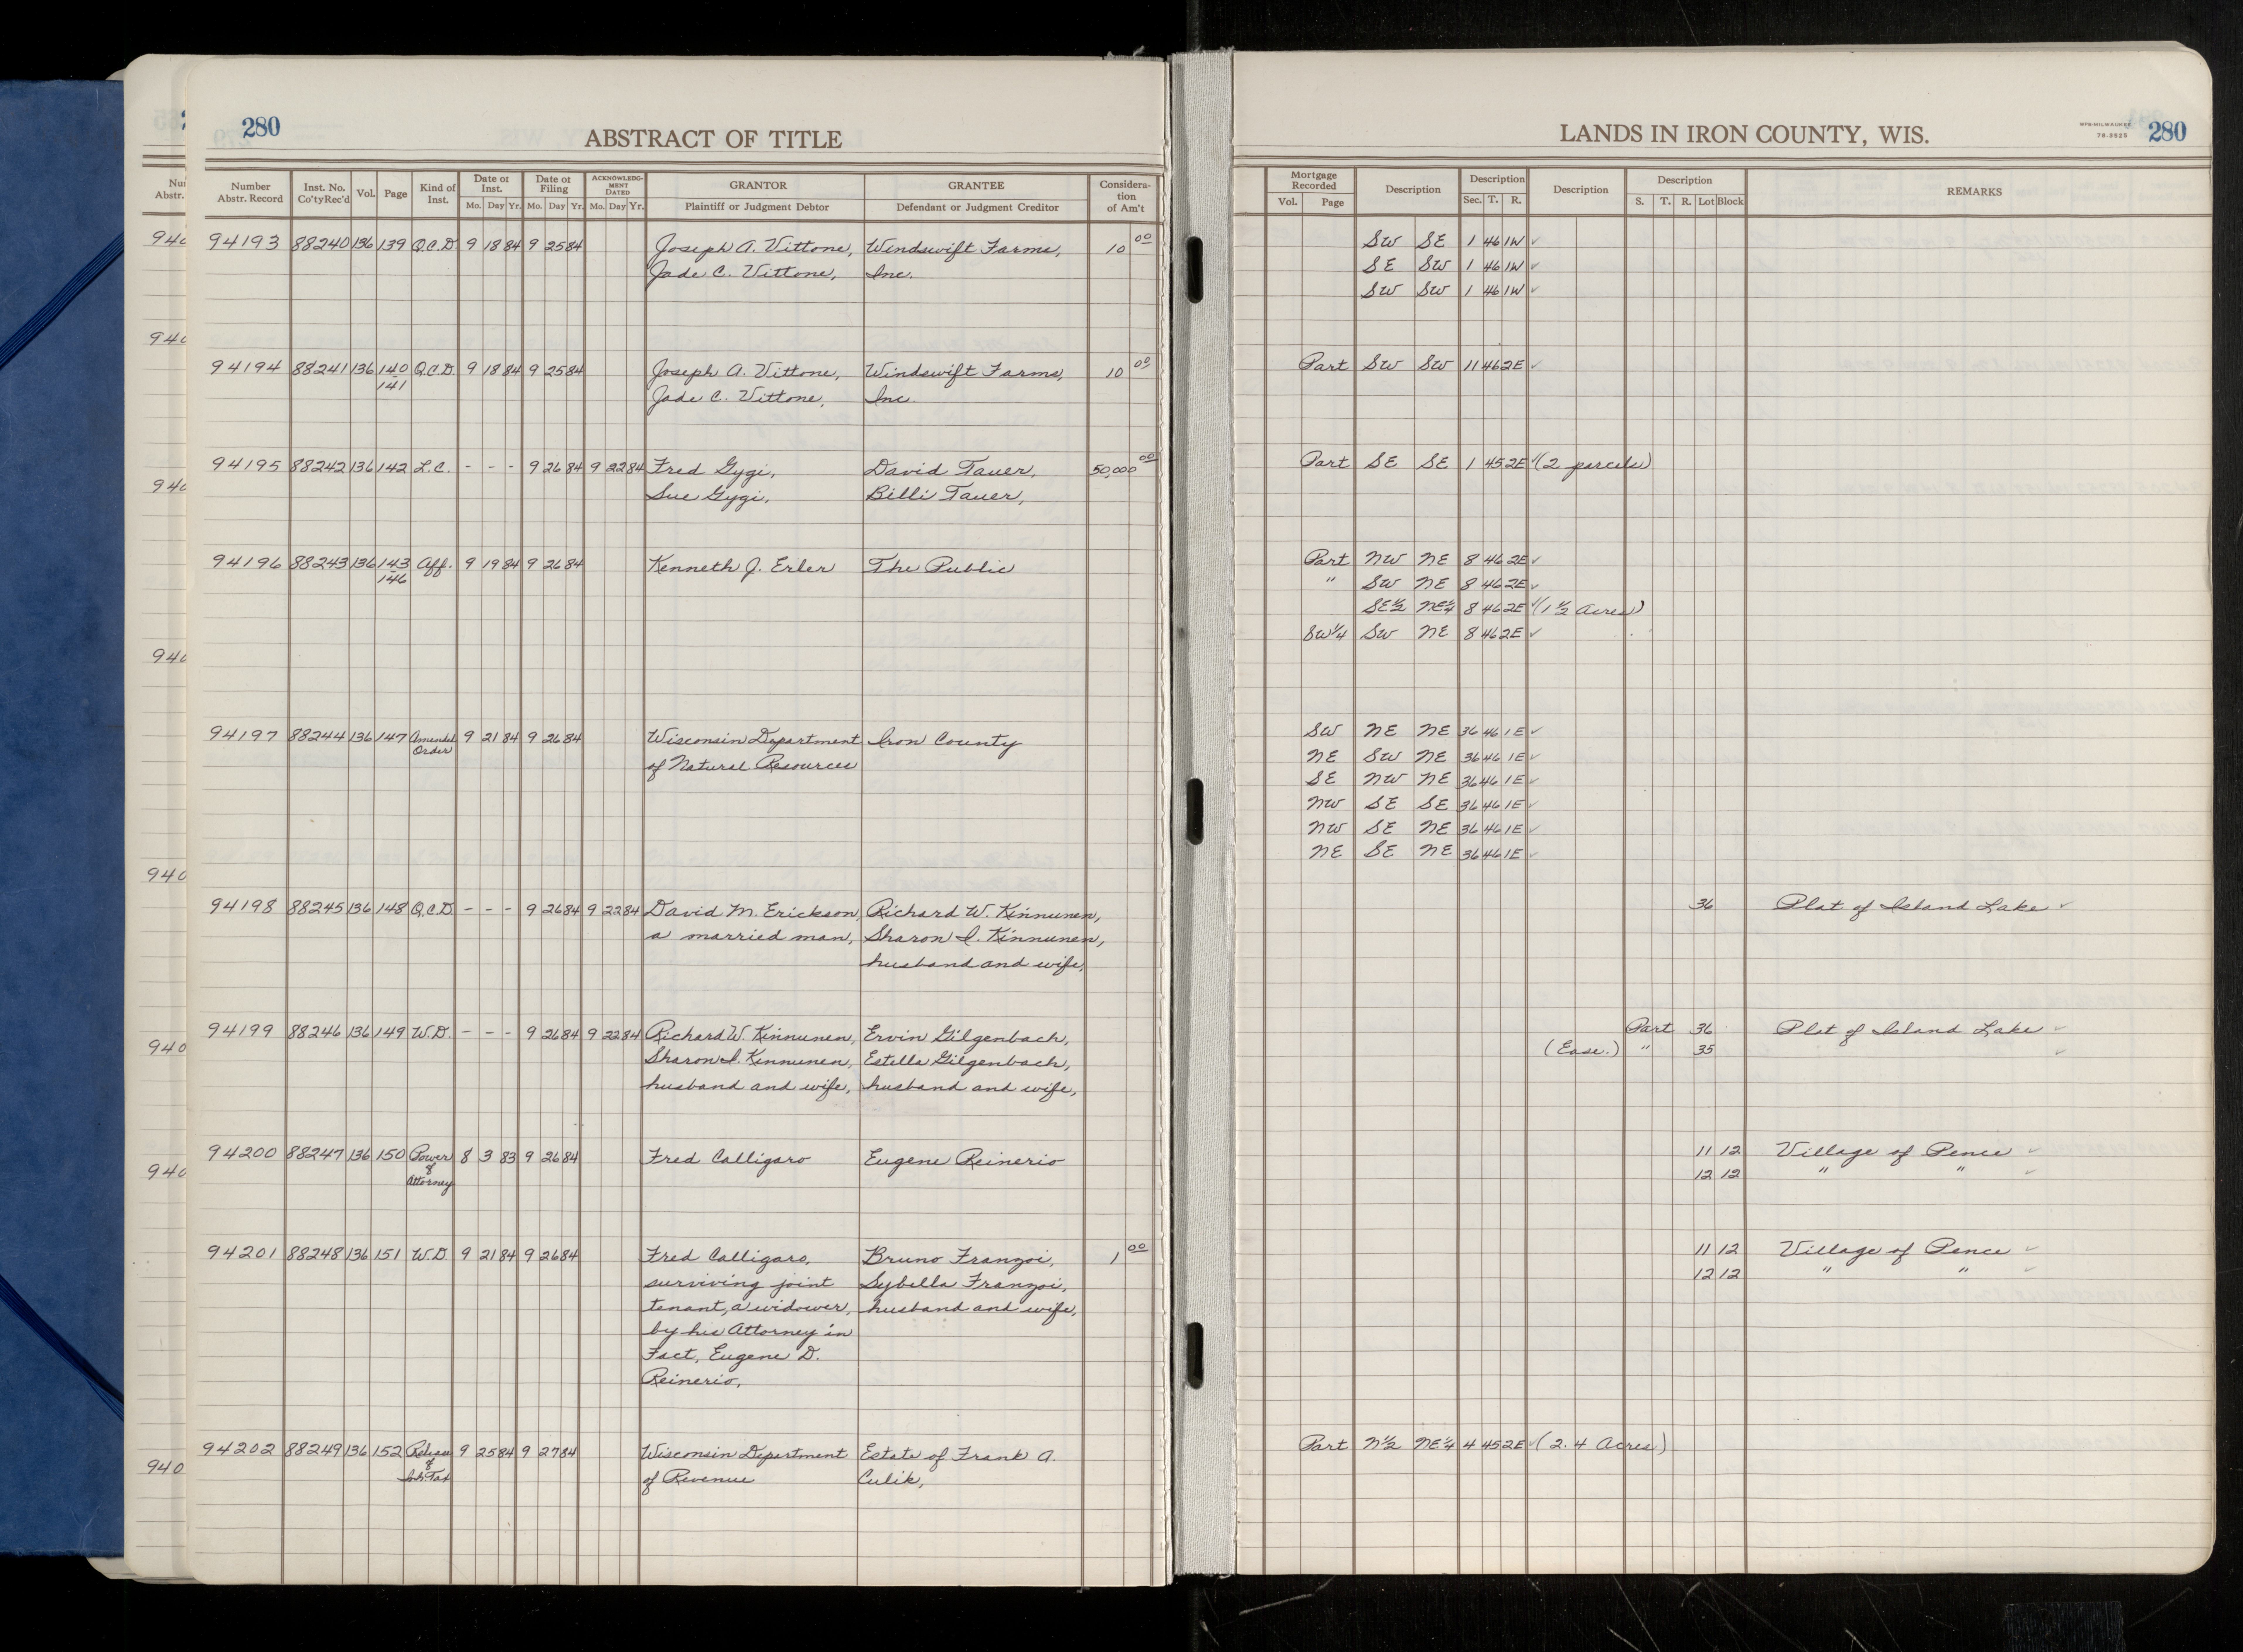 280
ABSTRACT OF TITLE
LANDS IN IRON COUNTY, WIS.
280
Number Abstr. Record
Inst. No. Co'ty Rec'd
Vol.
Page
Kind of Inst.
Date of Inst.
Mo. Day Yr.
Date of Filing
Mo. Day Yr.
ACKNOWLEDGMENT DATED
Mo. Day Yr.
GRANTOR
Plaintiff or Judgment Debtor
GRANTEE
Defendant or Judgment Creditor
Consideration of Am't
Mortgage Recorded
Vol. Page
Description
Description
Sec. T. R.
Description
Description
S. T. R. Lot Block
REMARKS
94193 88240 136 139 Q.C.D. 9 18 84 9 25 84 Joseph A. Vittone, Windswift Farms, 10 00 SW SE 1 46 1W ✓
Jade C. Vittone, Inc. SE SW 1 46 1W ✓
SW SW 1 46 1W ✓
94194 88241 136 140 Q.C.D. 9 18 84 9 25 84 Joseph A. Vittone, Windswift Farms, 10 00 Part SW SW 11 46 2E ✓
141 Jade C. Vittone, Inc.
94195 88242 136 142 L.C. - - - 9 26 84 9 22 84 Fred Gygi, David Tauer, 50,000 00 Part SE SE 1 45 2E ✓ (2 parcels)
Sue Gygi, Billi Tauer,
94196 88243 136 143 Aff. 9 19 84 9 26 84 Kenneth J. Erler The Public Part NW NE 8 46 2E ✓
146 " SW NE 8 46 2E ✓
SE½ NE¼ 8 46 2E ✓ (1½ Acres)
SW¼ SW NE 8 46 2E ✓
94197 88244 136 147 Amended 9 21 84 9 26 84 Wisconsin Department Iron County SW NE NE 36 46 1E ✓
Order of Natural Resources NE SW NE 36 46 1E ✓
SE NW NE 36 46 1E ✓
NW SE SE 36 46 1E ✓
NW SE NE 36 46 1E ✓
NE SE NE 36 46 1E ✓
94198 88245 136 148 Q.C.D. - - - 9 26 84 9 22 84 David M. Erickson, Richard W. Kinnunen, 36 Plat of Island Lake ✓
a married man, Sharon I. Kinnunen,
husband and wife,
94199 88246 136 149 W.D. - - - 9 26 84 9 22 84 Richard W. Kinnunen, Ervin Gilgenbach, Part 36 Plat of Island Lake ✓
Sharon I. Kinnunen, Estella Gilgenbach, (Ease.) " 35 ✓
husband and wife, husband and wife,
94200 88247 136 150 Power 8 3 83 9 26 84 Fred Calligaro Eugene Reinerio 11 12 Village of Pence ✓
of 12 12 " " ✓
Attorney
94201 88248 136 151 W.D. 9 21 84 9 26 84 Fred Calligaro, Bruno Franzoi, 1 00 11 12 Village of Pence ✓
surviving joint Sybella Franzoi, 12 12 " " ✓
tenant, a widower, husband and wife,
by his Attorney in
Fact, Eugene D.
Reinerio,
94202 88249 136 152 Release 9 25 84 9 27 84 Wisconsin Department Estate of Frank A. Part N½ NE¼ 4 45 2E ✓ (2.4 Acres)
of of Revenue Culik,
Inh. Tax